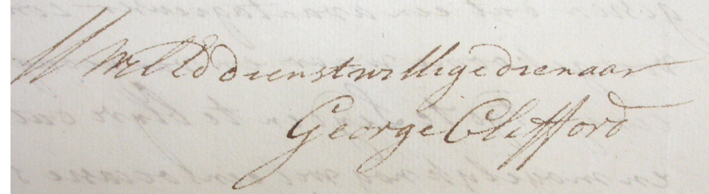 UWEd dienstwillige dienaar
George Clifford